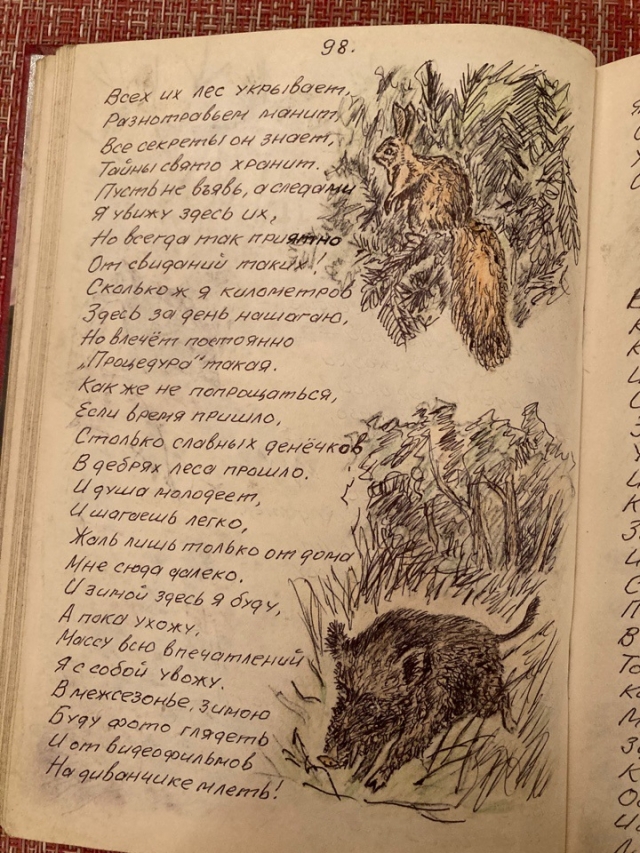 98.
Всех их лес укрывает,
Разнотравьем манит,
Все секреты он знает,
Тайны свято хранит.
Пусть не въявь, а следами
Я увижу здесь их,
Но всегда так приятно
От свиданий таких!
Сколько ж я километров
Здесь за день нашагаю,
Но влечёт постоянно
„Процедура“ такая.
Как же не попрощаться,
Если время пришло,
Столько славных денёчков
В дебрях леса прошло.
И душа молодеет,
И шагаешь легко,
Жаль лишь только от дома
Мне сюда далеко.
И зимой здесь я буду,
А пока ухожу,
Массу всю впечатлений
Я с собой увожу.
В межсезонье, зимою
Буду фото глядеть
И от видеофильмов
На диванчике млеть!